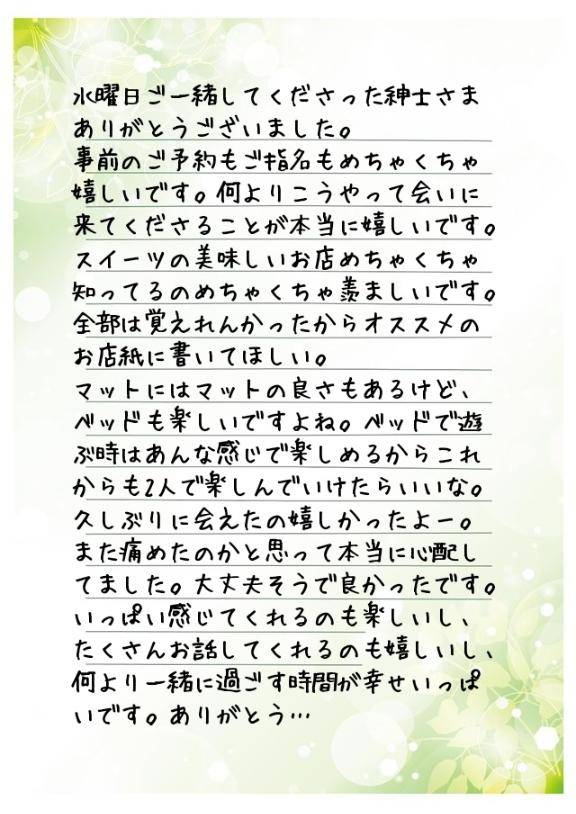 水曜日ご一緒してくださった紳士さま
ありがとうございました。
事前のご予約もご指名もめちゃくちゃ
嬉しいです。何よりこうやって会いに
来てくださることが本当に嬉しいです。
スイーツの美味しいお店めちゃくちゃ
知ってるのめちゃくちゃ羨ましいです。
全部は覚えれんかったからオススメの
お店紙に書いてほしい。
マットにはマットの良さもあるけど、
ベッドも楽しいですよね。ベッドで遊
ぶ時はあんな感じで楽しめるからこれ
からも2人で楽しんでいけたらいいな。
久しぶりに会えたの嬉しかったよー。
また痛めたのかと思って本当に心配し
てました。大丈夫そうで良かったです。
いっぱい感じてくれるのも楽しいし、
たくさんお話してくれるのも嬉しいし、
何より一緒に過ごす時間が幸せいっぱ
いです。ありがとう…